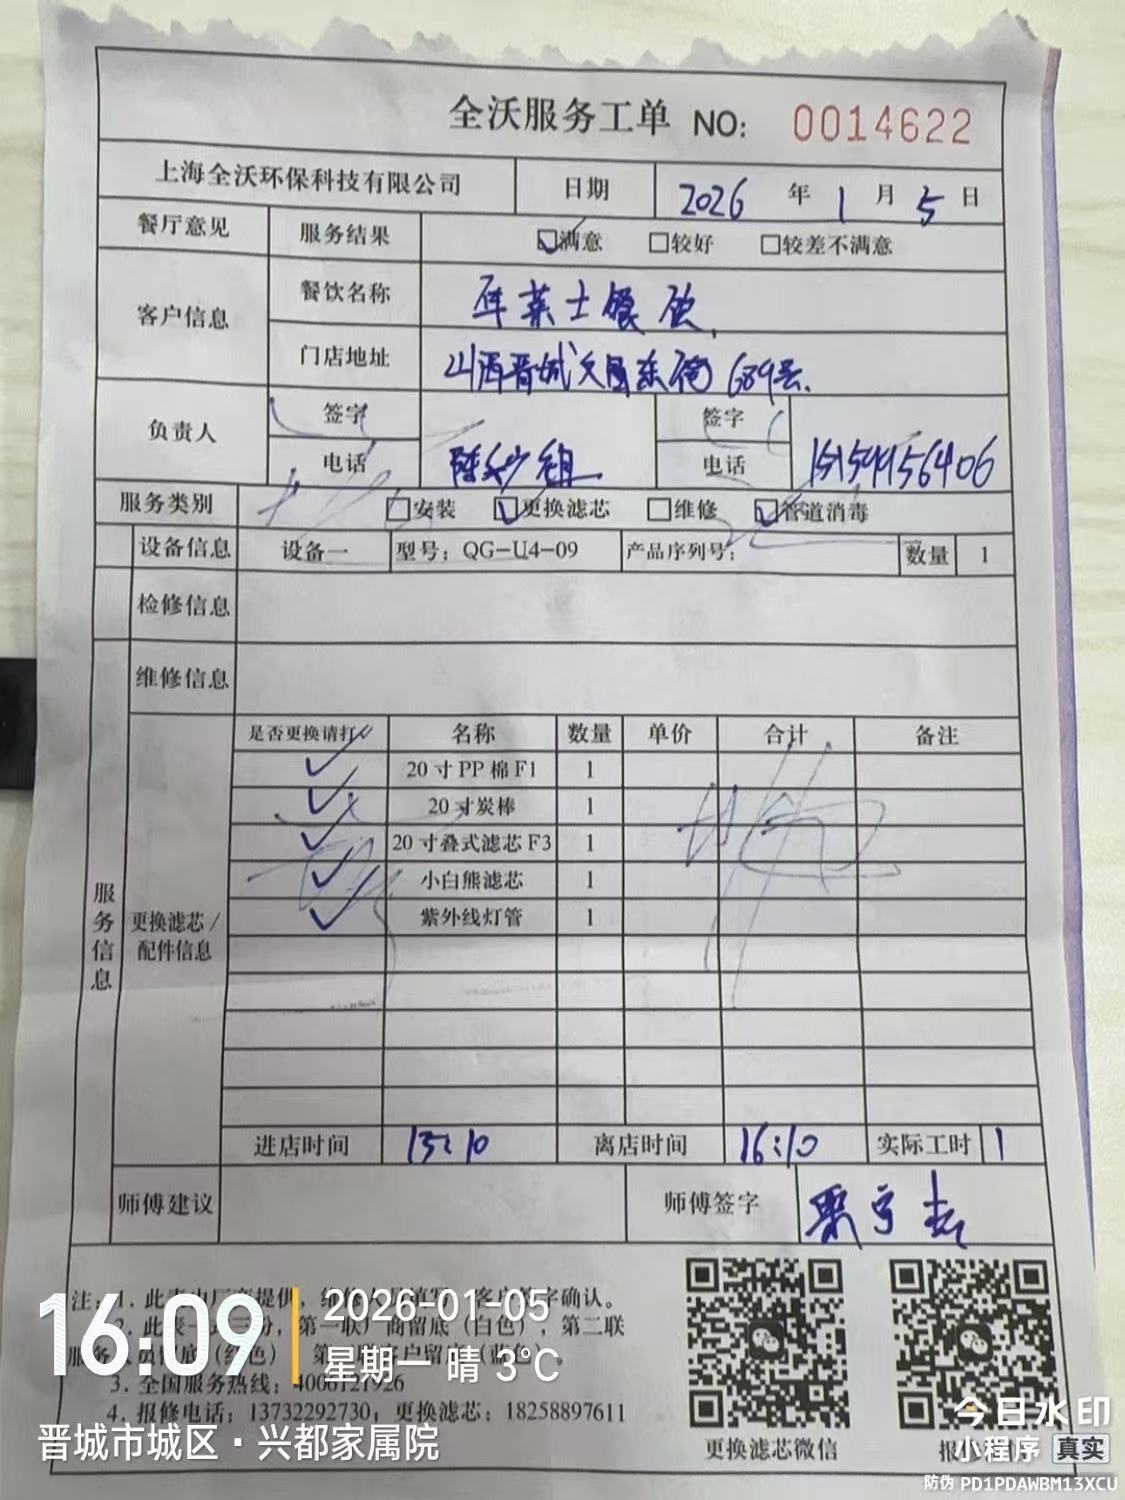 全沃服务工单 NO: 0014622
上海全沃环保科技有限公司 日期 2026 年 1 月 5 日
餐厅意见 服务结果 ☑满意 □较好 □较差不满意
客户信息 餐饮名称 库莱士餐饮
门店地址 山西晋城文昌东街689号
负责人 签字 签字
电话 电话 15159956406
服务类别 □安装 ☑更换滤芯 □维修 ☑管道消毒
设备信息 设备一 型号：QG-U4-09 产品序列号： 数量 1
检修信息
维修信息
服务信息
更换滤芯/配件信息
是否更换请打✓ 名称 数量 单价 合计 备注
✓ 20寸PP棉F1 1
✓ 20寸炭棒 1
✓ 20寸叠式滤芯F3 1
✓ 小白熊滤芯 1
✓ 紫外线灯管 1
进店时间 15:10 离店时间 16:10 实际工时 1
师傅建议 师傅签字
注：1. 此表由厂家提供，客户签字确认。
2. 此表一式三份，第一联厂商留底（白色），第二联
服务人员留底（红色） 第 联客户留底（蓝色）。
3. 全国服务热线：4006121926
4. 报修电话：13732292730；更换滤芯：18258897611
更换滤芯微信
16:09 2026-01-05
星期一 晴 3°C
晋城市城区·兴都家属院
今日水印
小程序 真实
防伪 PD1PDAWBM13XCU